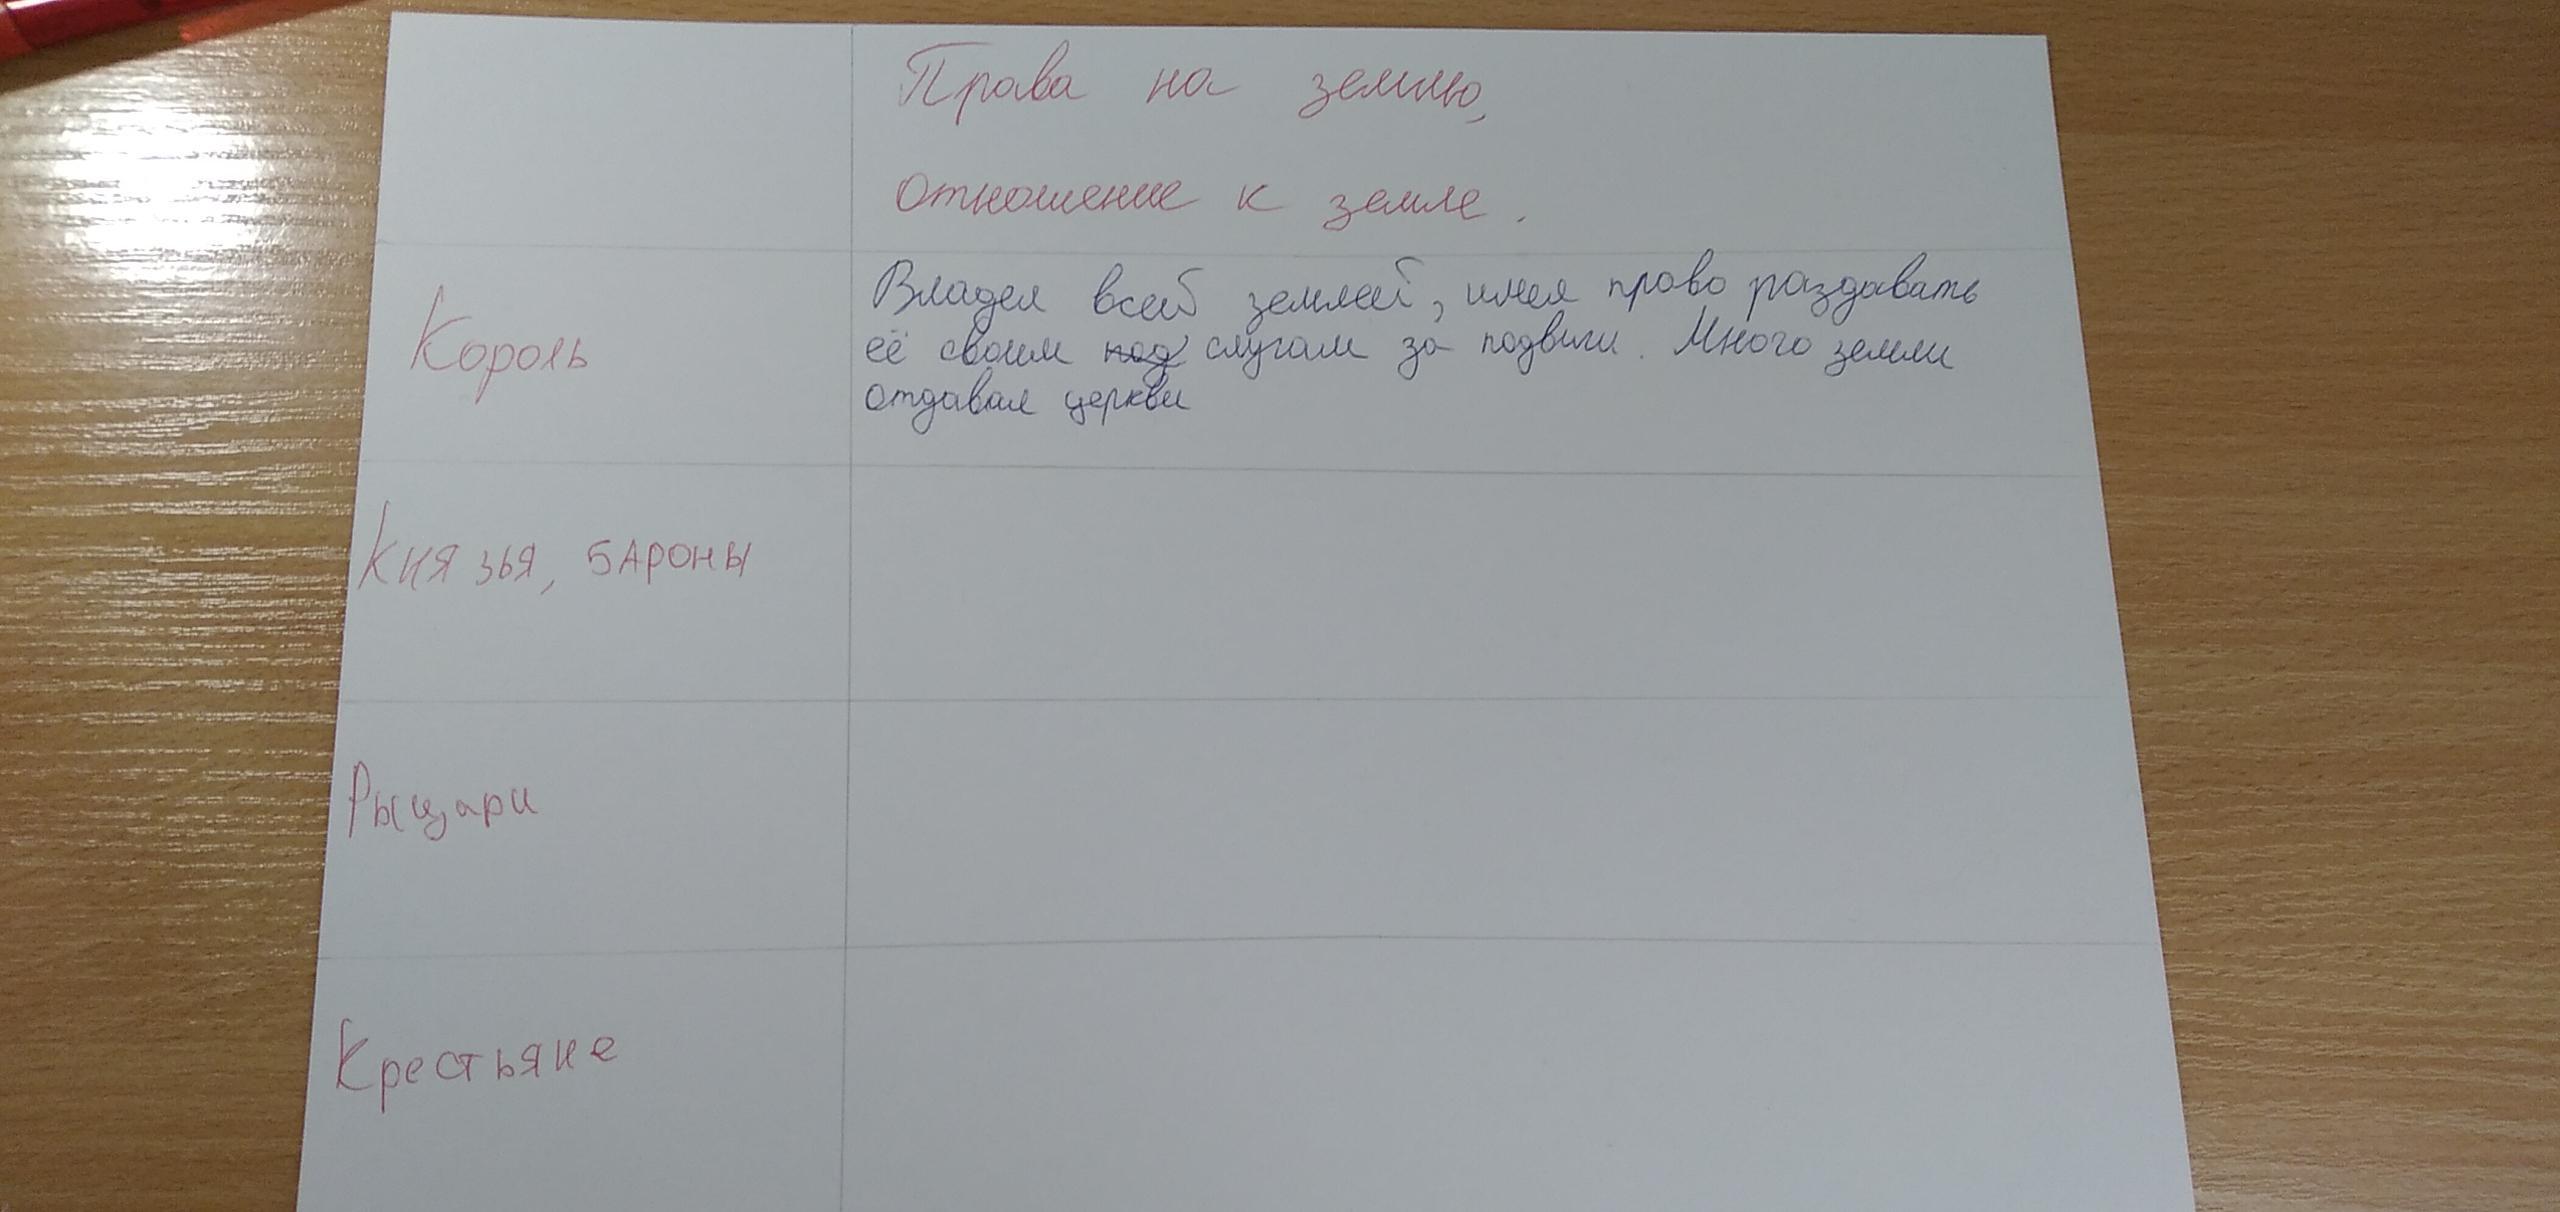 Права на землю,
отношение к земле.
Король
Владел всей землей, имел право раздавать
её своим под слугам за подвиги. Много земли
отдавал церкви
Князья, БАРОНЫ
Рыцари
Крестьяне